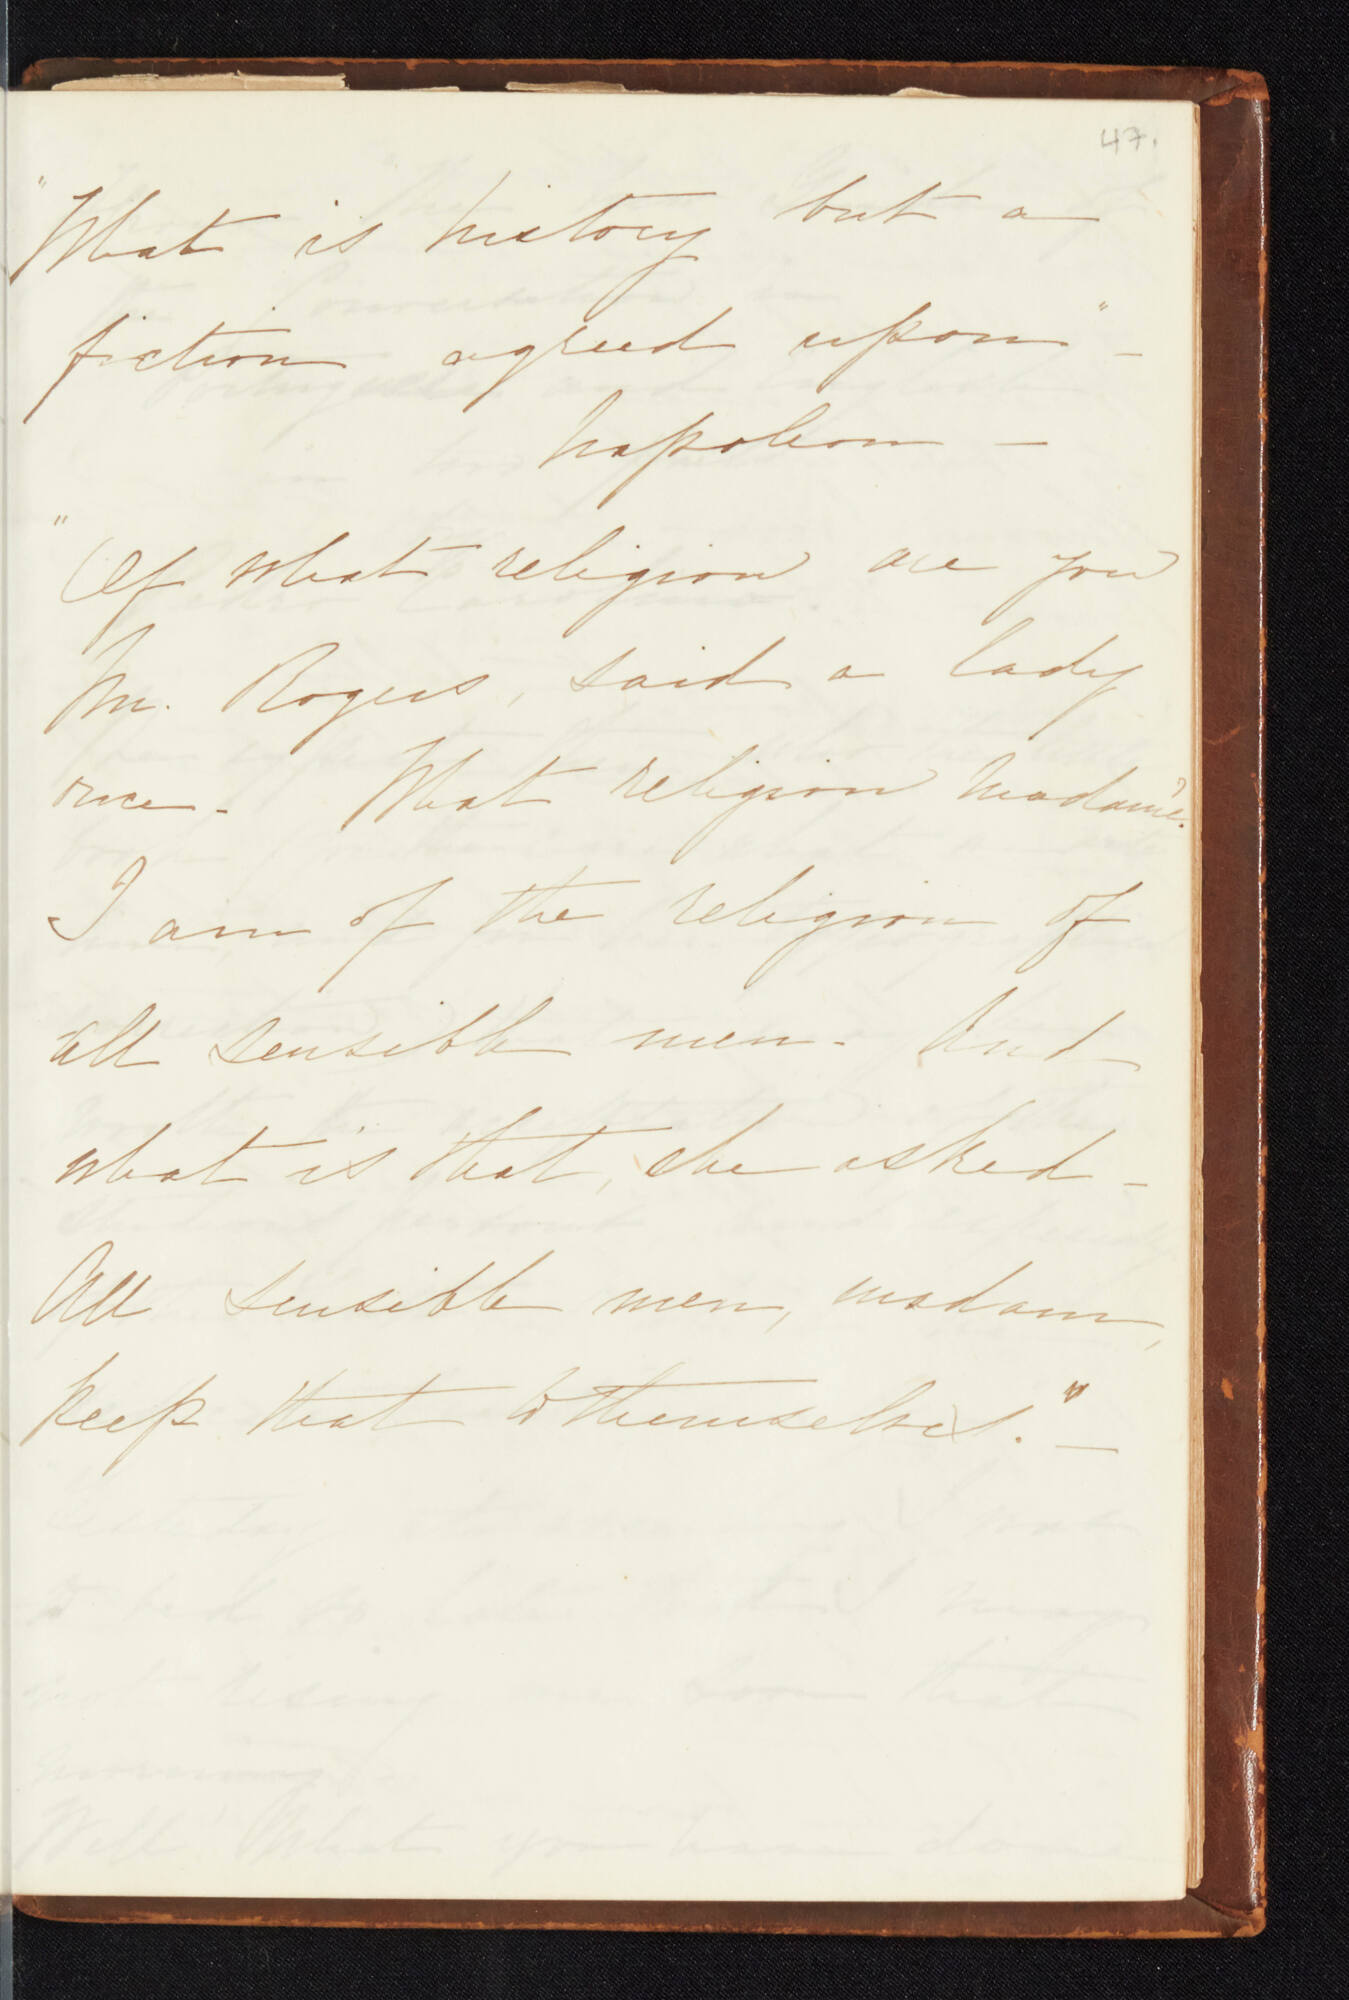 47.
"What is history but a
fiction agreed upon" –
Napoleon –
"Of what religion are you
Mr. Rogers, said a lady
once – What religion Madame?
I am of the religion of
all sensible men – And
what is that, she asked –
All sensible men, madam,
keep that to themselves." –